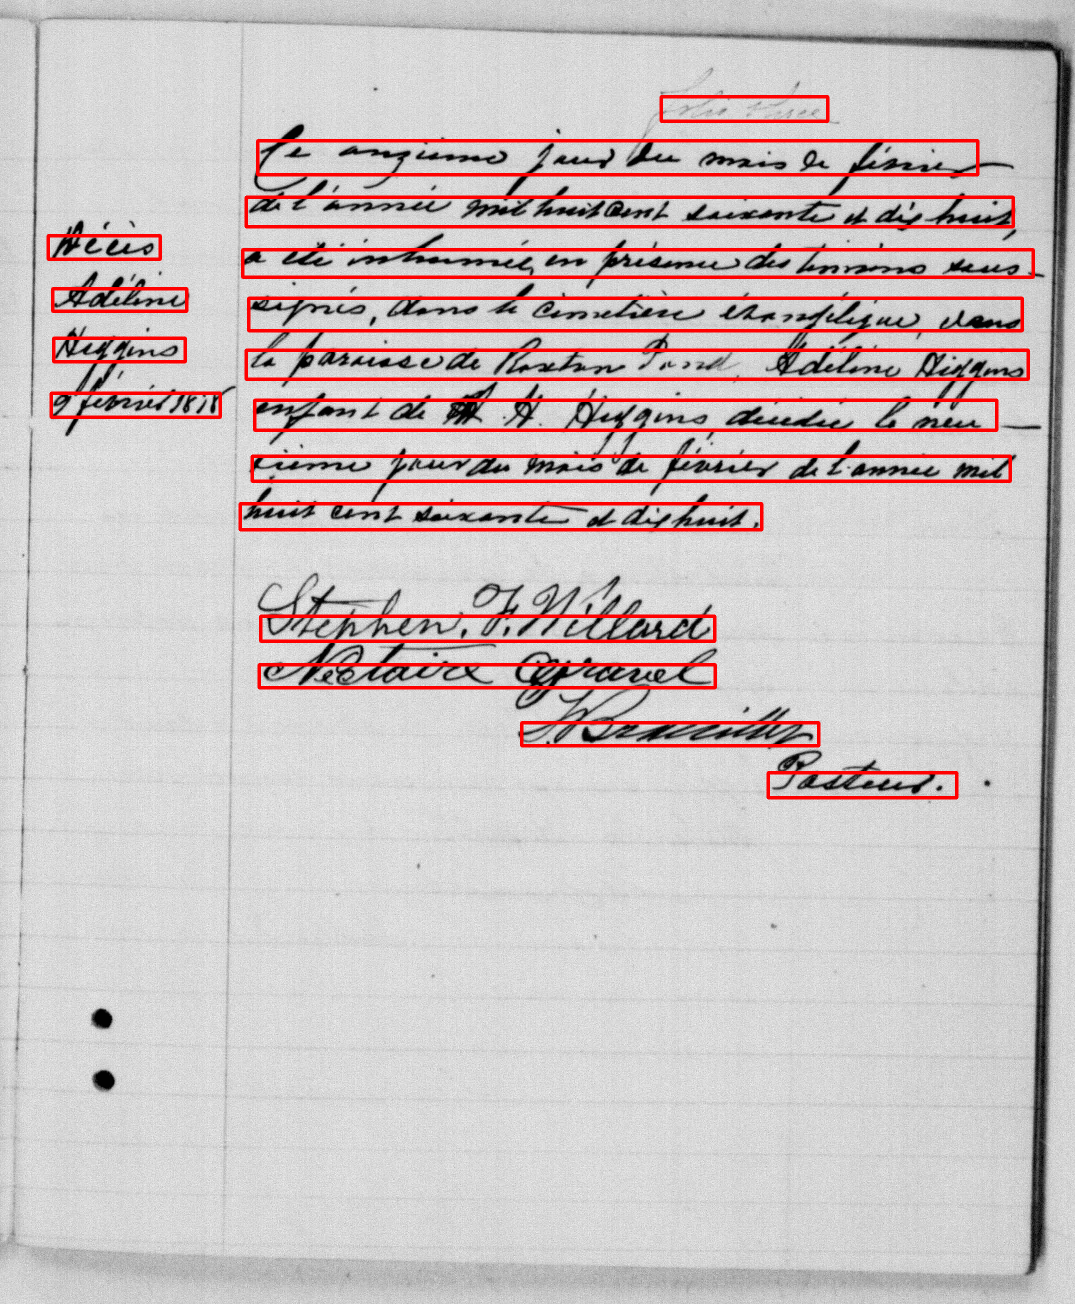 Ce onzième jour du mois de février
de l'année mil huit cent soixante et dix huit,
a été inhumée, en présence des témoins sous-
signés, dans le cimetière évangélique, dans
la paroisse de Roxton Pond, Adéline Higgins
enfant de H. Higgins, décédée le neu-
vième jour du mois de février de l'année mil
huit cent soixante et dix huit.
Décès
Adéline
Higgins
9 février 1878
Stephen. F. Willard
Nectaire Gravel
Pasteur.